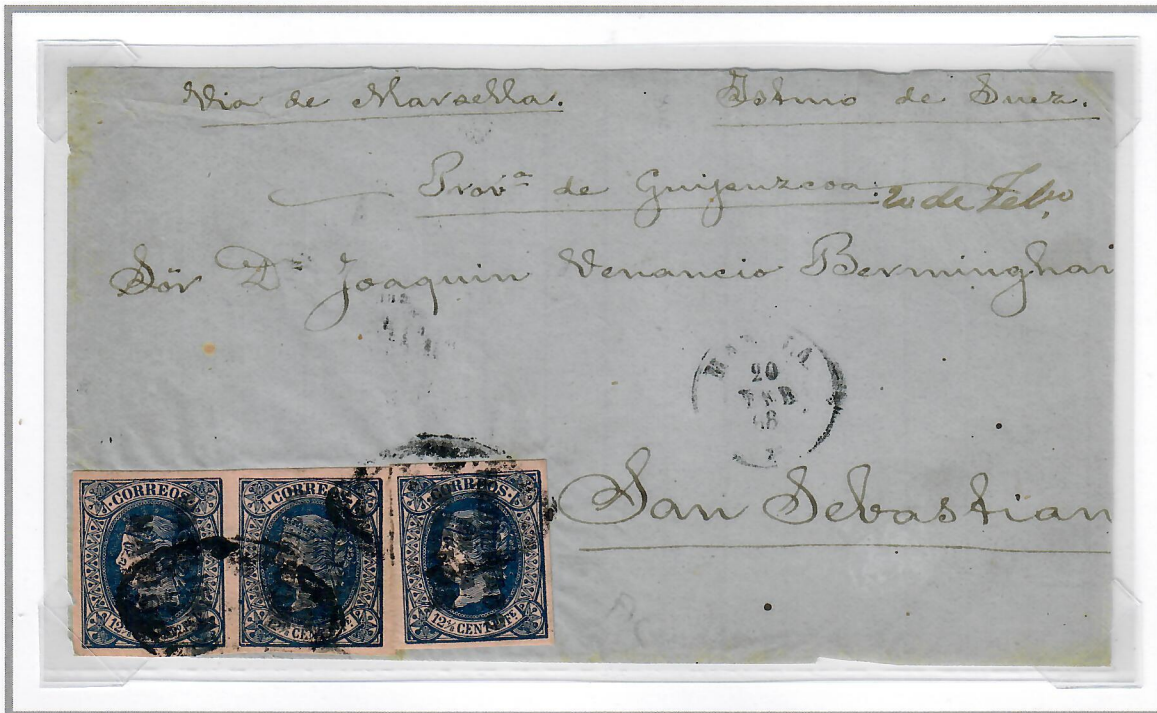 Via de Marsella. Istmo de Suez.
Prov.ª de Guipuzcoa. 20 de Feb.º
Sör D.n Joaquin Venancio Berminghan
20
FEB
68
San Sebastian
CORREOS CORREOS CORREOS
CENT PFE
12 4/8 CENT PFE